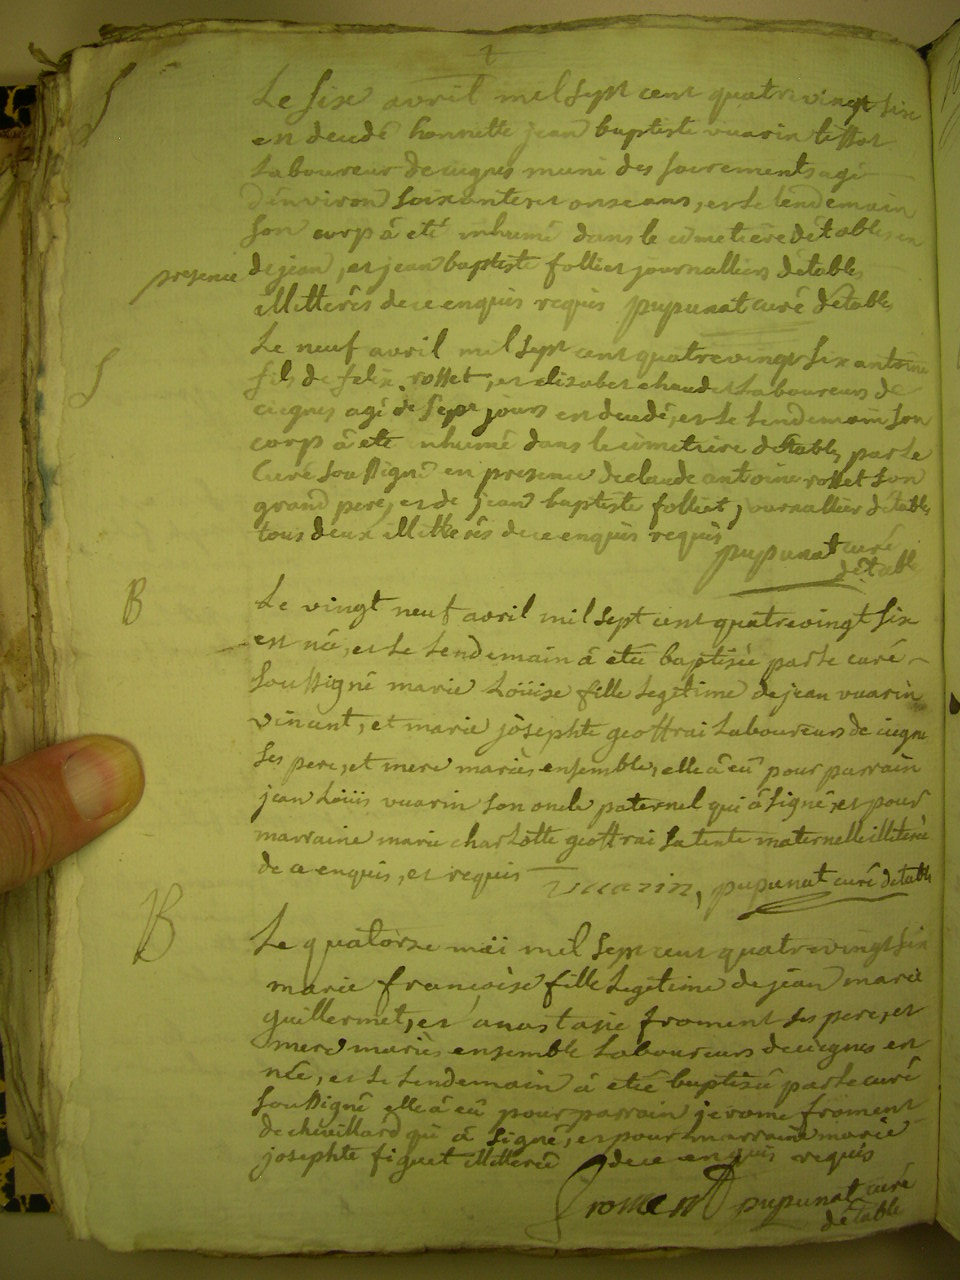 S Le six avril mil sept cent quatrevingt six
est decedé honnette jean baptiste vuarin tissot
Laboureur de ciegnes muni des sacrements agé
d'environ soixantes et onse ans, et le lendemain
son corp â eté inhumé dans le cimetiére détables en
presence de jean, et jean baptiste folliet journalliers détables
illittérés de ce enquis requis pupunat curé détables
S Le neuf avril mil sept cent quatrevingt six antoine
fils de felix rosset, et elizabet chaudet Laboureurs de
ciegnes agé de sept jours est decedé, et le lendemain son
corp â eté inhumé dans le cimetiere détables par le
Curé soussigné en presence de claude antoine rosset son
grand pere, et de jean baptiste folliet, journallier détables
tous deux illittérés de ce enquis requis pupunat curé
détable
B Le vingt neuf avril mil sept cent quatrevingt six
est née, et le lendemain â etée baptisée par le curé
soussigné marie Loüise fille legitime de jean vuarin
vincent, et marie jòsephte geoffrai Laboureurs de ciegne
ses pere, et mere mariés ensemble, elle â eû pour parrain
jean Loüis vuarin son oncle paternel qui â signé, et pour
marraine marie charlotte geoffrai sa tente maternelle illiterée
de ce enquis, et requis vuarin, pupunat curé détable
B Le quatorze mäi mil sept cent quatrevingt six
marie françoise fille legitime de jean marie
guillermet, et anastasie froment ses pere, et
mere mariés ensemble Laboureurs de ciegnes est
née, et le lendemain â etée baptisée par le curé
soussigné elle â eû pour parrain jerome froment
de chevillard qui â signé, et pour marraine marie
josephte figuet illiterée de ce enquis requis
froment pupunat curé
détable